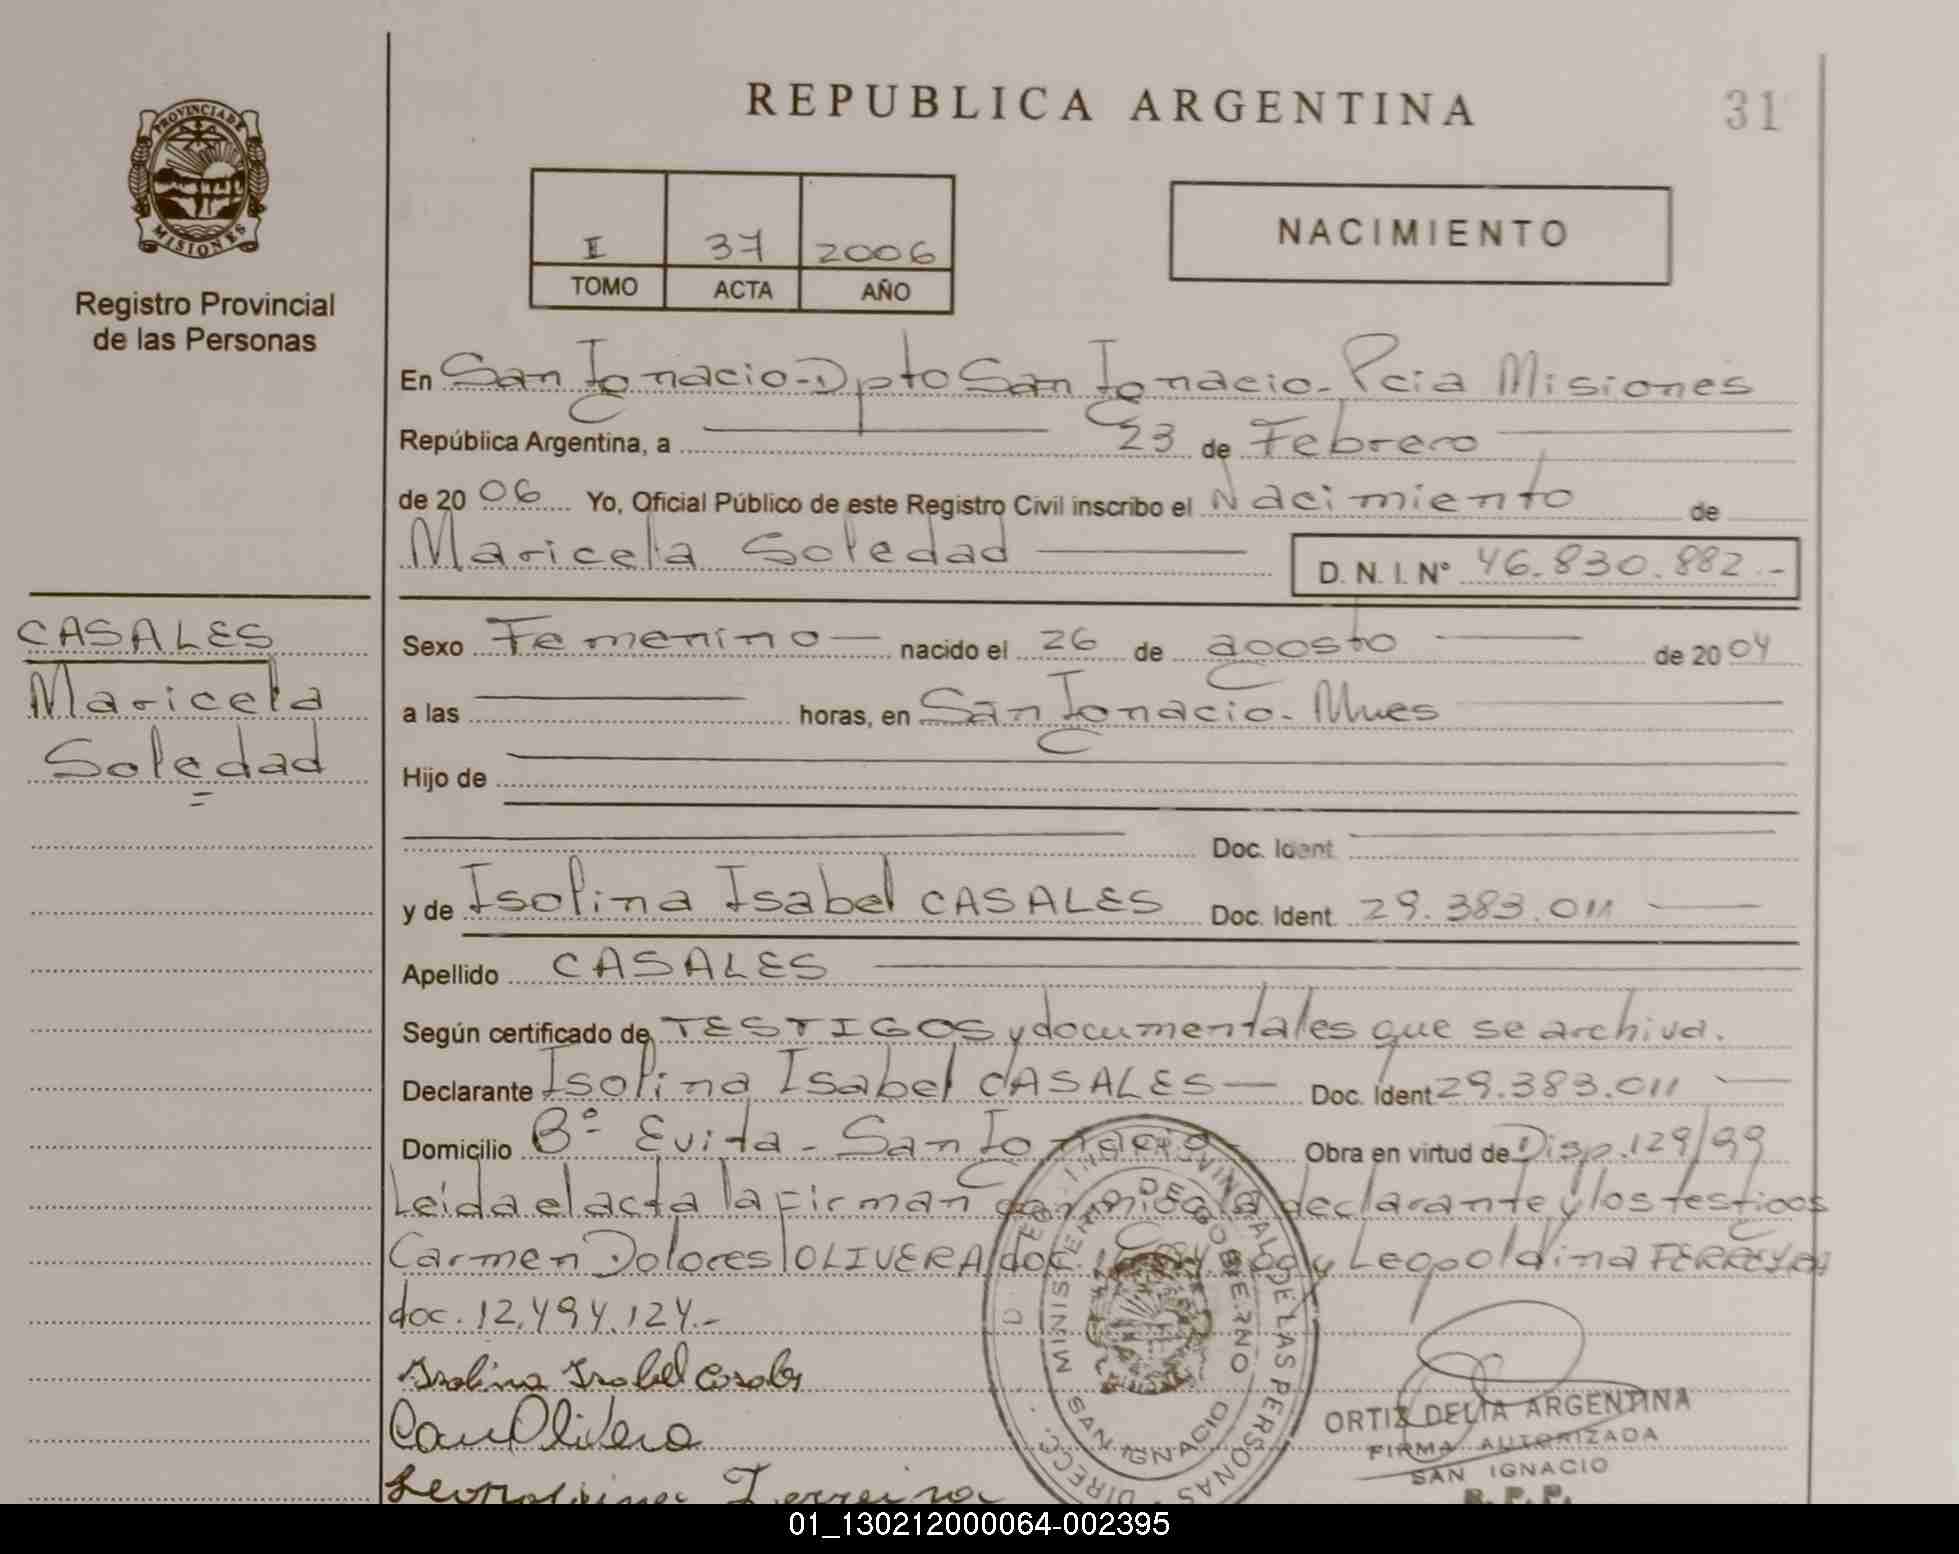 REPUBLICA ARGENTINA
31
PROVINCIA DE
MISIONES
Registro Provincial
de las Personas
I 37 2006
TOMO ACTA AÑO
NACIMIENTO
En San Ignacio - Dpto San Ignacio - Pcia Misiones
República Argentina, a 23 de Febrero
de 2006 Yo, Oficial Público de este Registro Civil inscribo el Nacimiento de
Maricela Soledad D. N. I. Nº 46.830.882.-
CASALES
Maricela
Soledad
Sexo Femenino nacido el 26 de agosto de 2004
a las horas, en San Ignacio - Mnes
Hijo de
Doc. Ident.
y de Isolina Isabel CASALES Doc. Ident. 29.383.011
Apellido CASALES
Según certificado de TESTIGOS y documentales que se archiva.
Declarante Isolina Isabel CASALES Doc. Ident 29.383.011
Domicilio Bº Evita - San Ignacio Obra en virtud de Disp. 129/99
Leida el acta la firman conmigo la declarante y los testigos
Carmen Dolores OLIVERA doc. y Leopoldina FERREYRA
doc. 12.494.124.-
Isolina Isabel Casales
Olivera
Leopoldina Ferreira
MINISTERIO DE GOBIERNO
SAN IGNACIO
ORTIZ DELIA ARGENTINA
FIRMA AUTORIZADA
SAN IGNACIO
R. P. P.
01_130212000064-002395